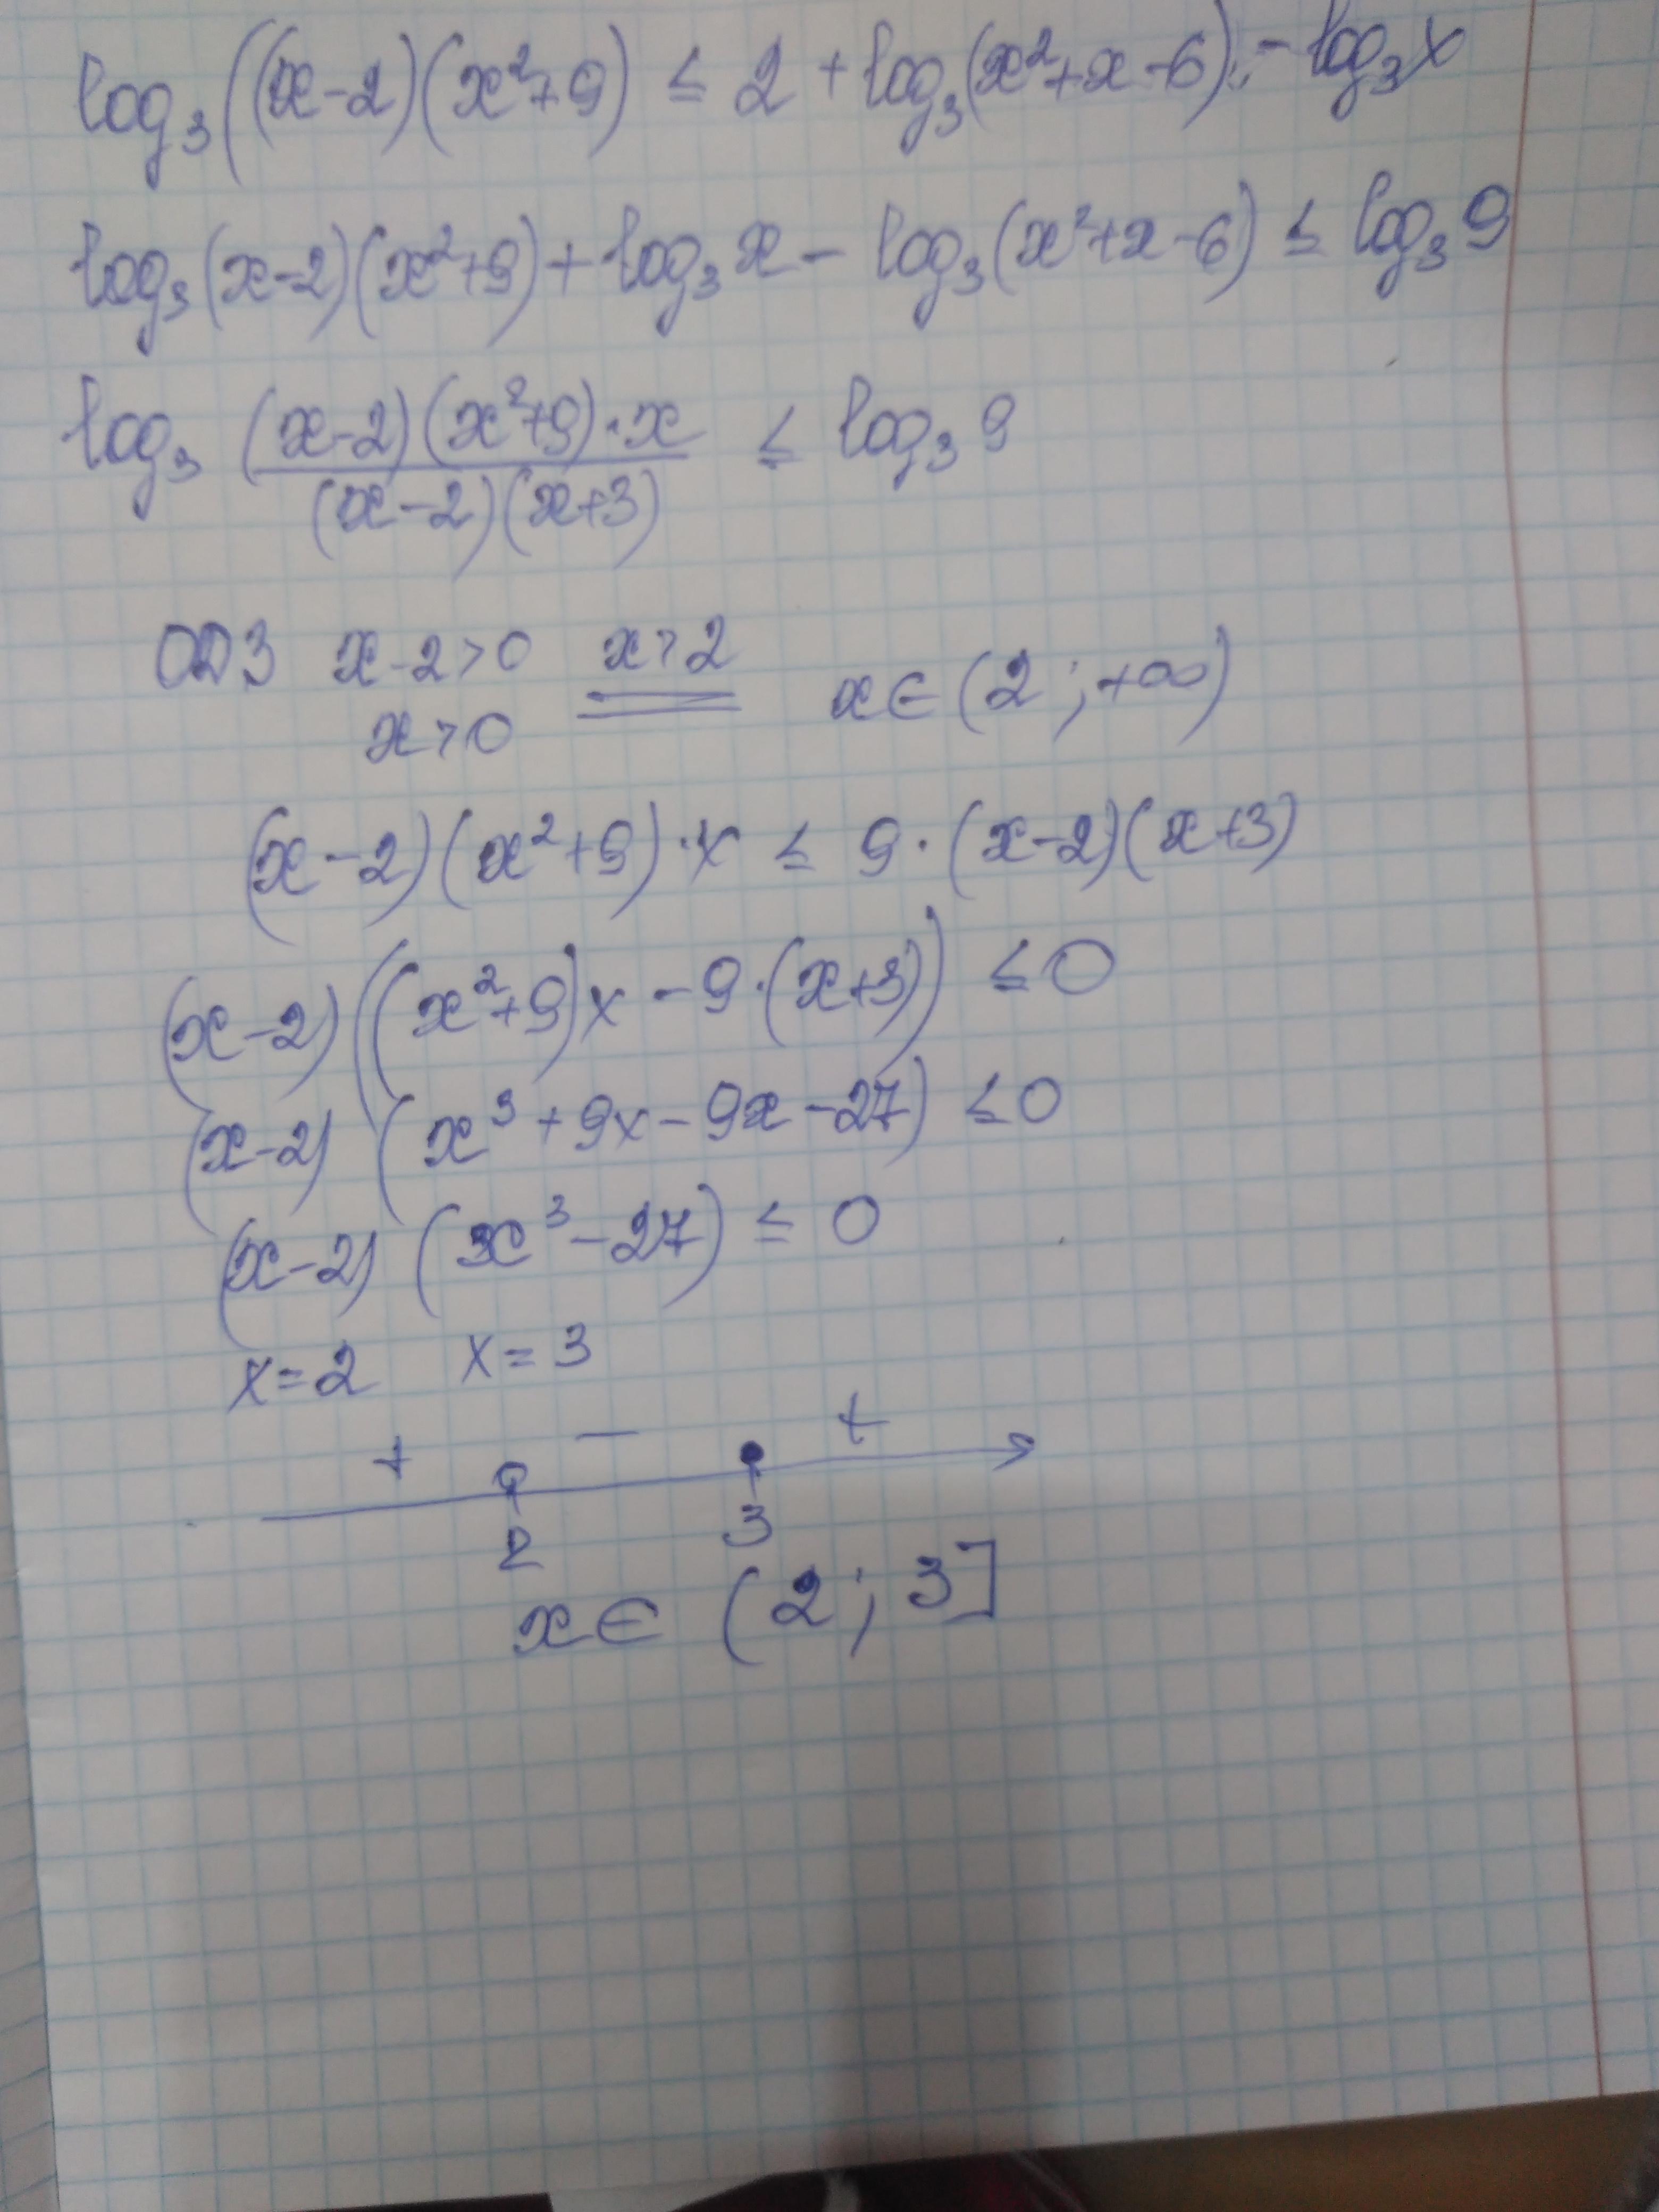 log₃((x-2)(x²+9) ≤ 2 + log₃(x²+x-6) - log₃x
log₃(x-2)(x²+9) + log₃x - log₃(x²+x-6) ≤ log₃9
log₃ (x-2)(x²+9)·x / (x-2)(x+3) ≤ log₃9
ОДЗ x-2>0 x>2 x∈(2;+∞)
x>0
(x-2)(x²+9)·x ≤ 9·(x-2)(x+3)
(x-2)((x²+9)x - 9·(x+3)) ≤ 0
(x-2)(x³+9x-9x-27) ≤ 0
(x-2)(x³-27) ≤ 0
x=2 x=3
+ - +
2 3
x∈(2;3]